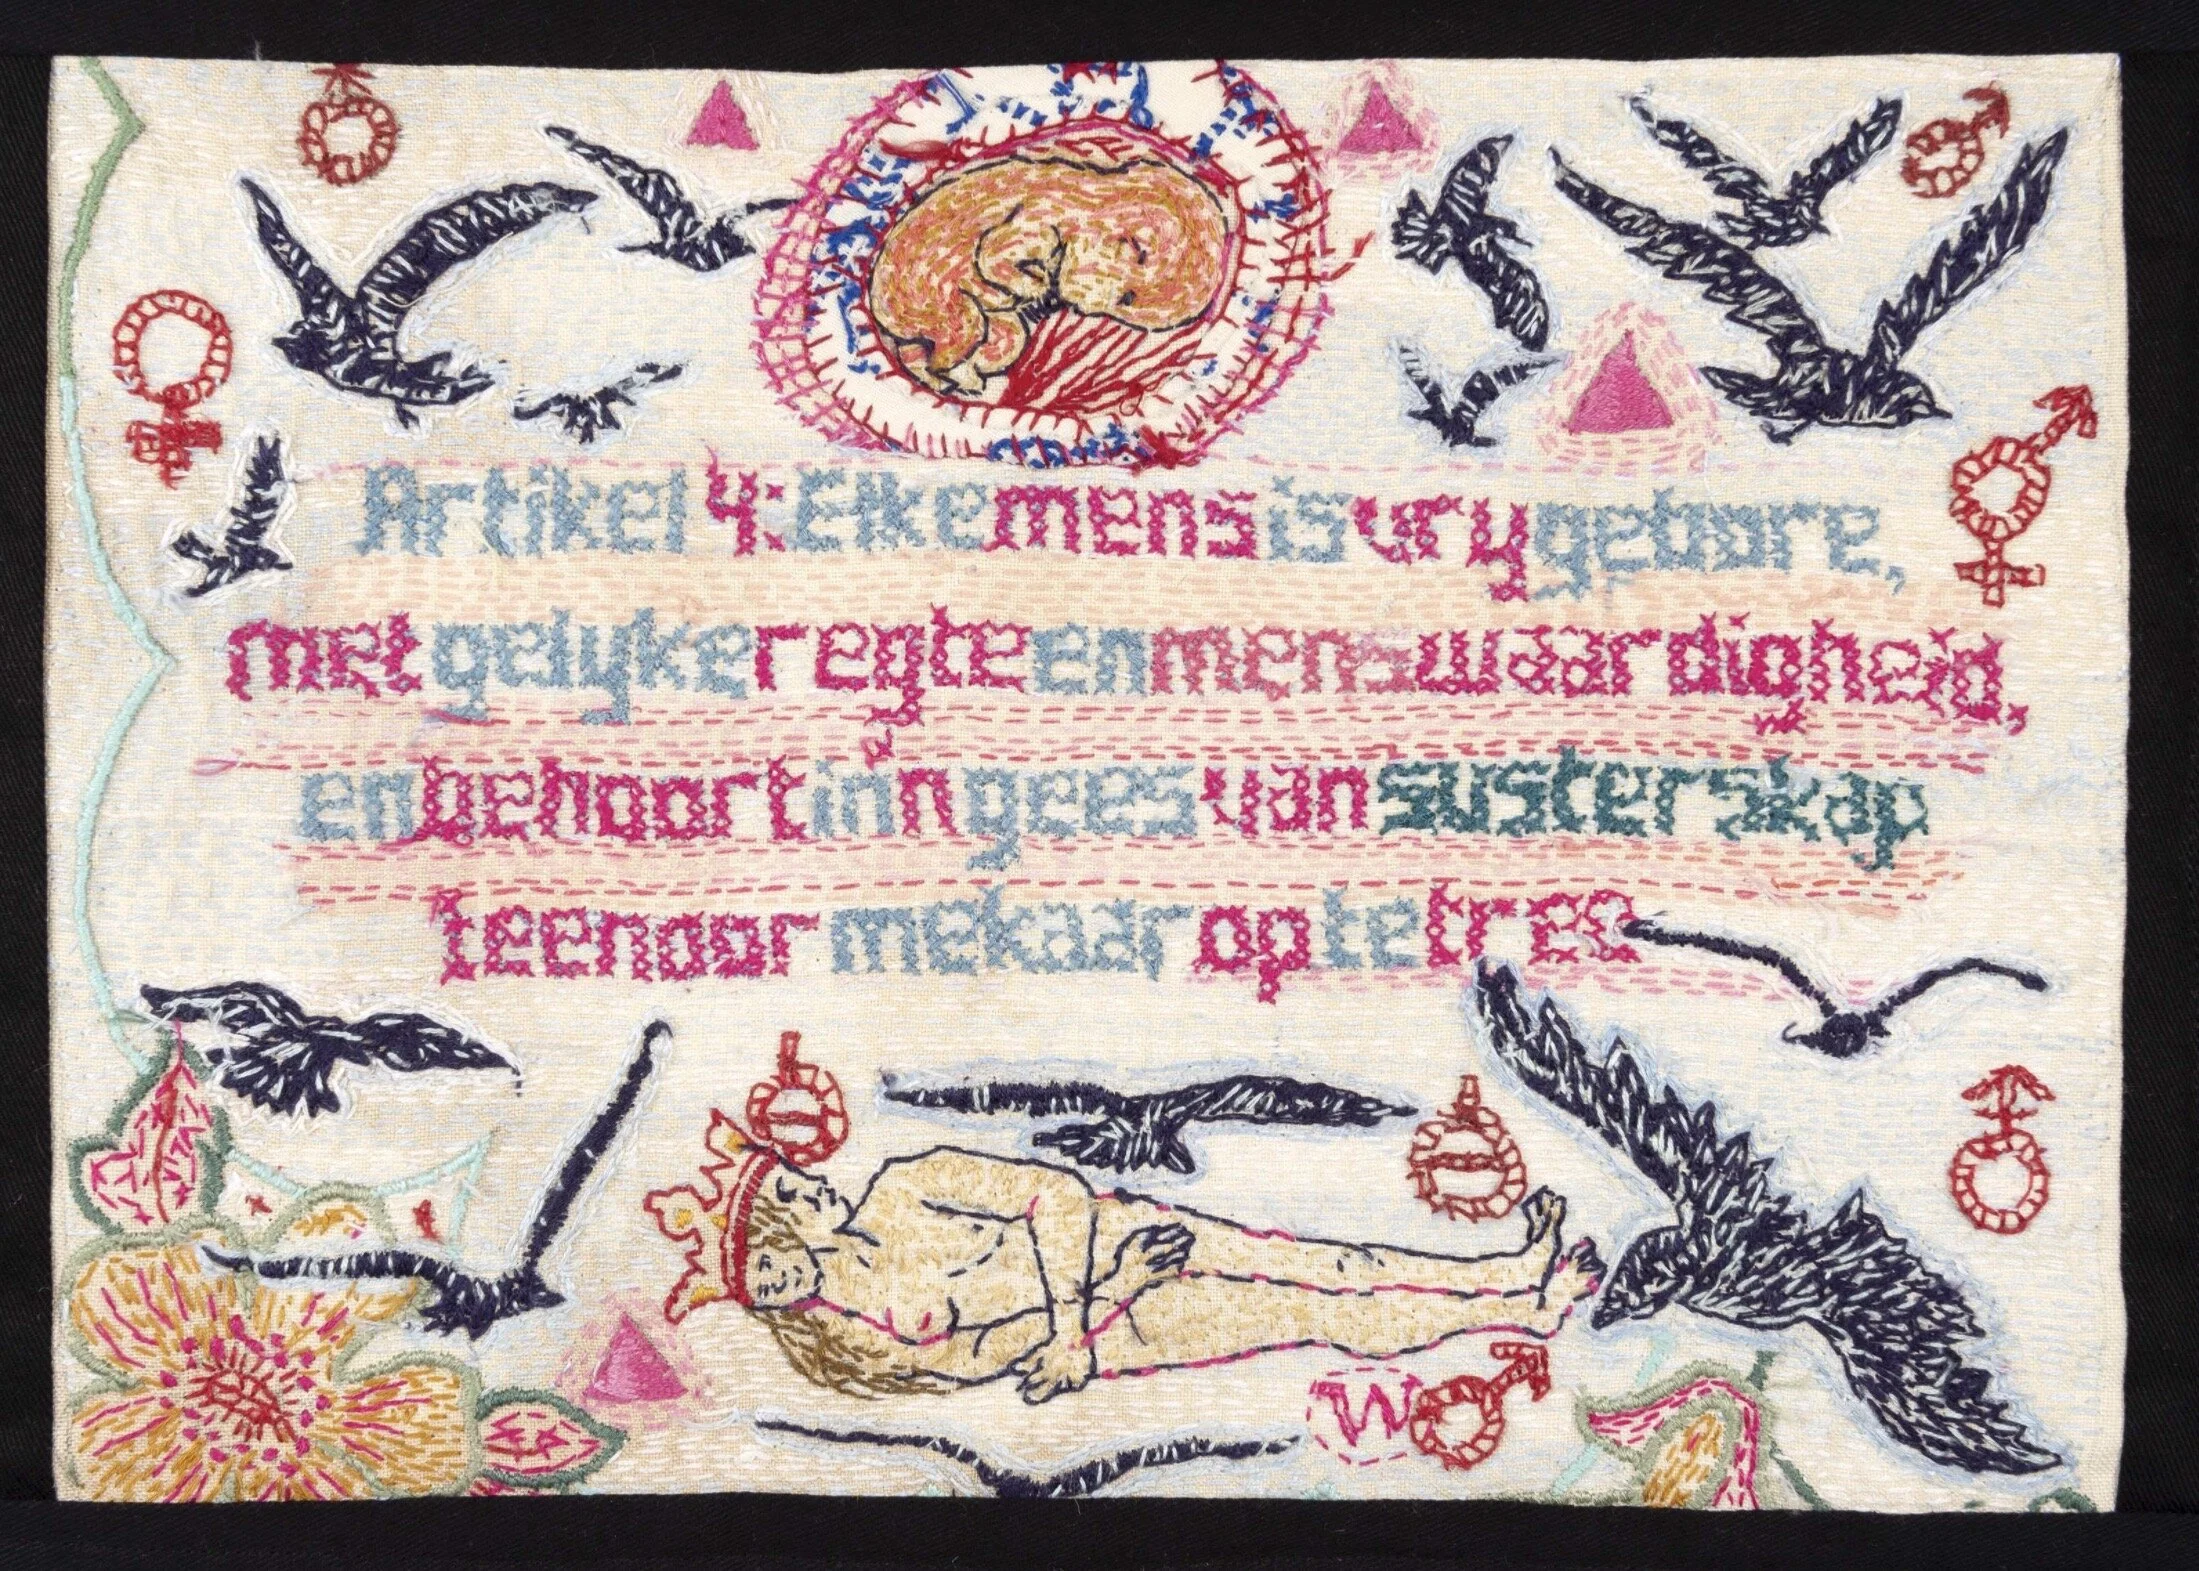 Artikel 4: Elke mens is vry gebore,
met gelyke regte en menswaardigheid,
en behoort in n gees van susterskap
teenoor mekaar op te tree.
W